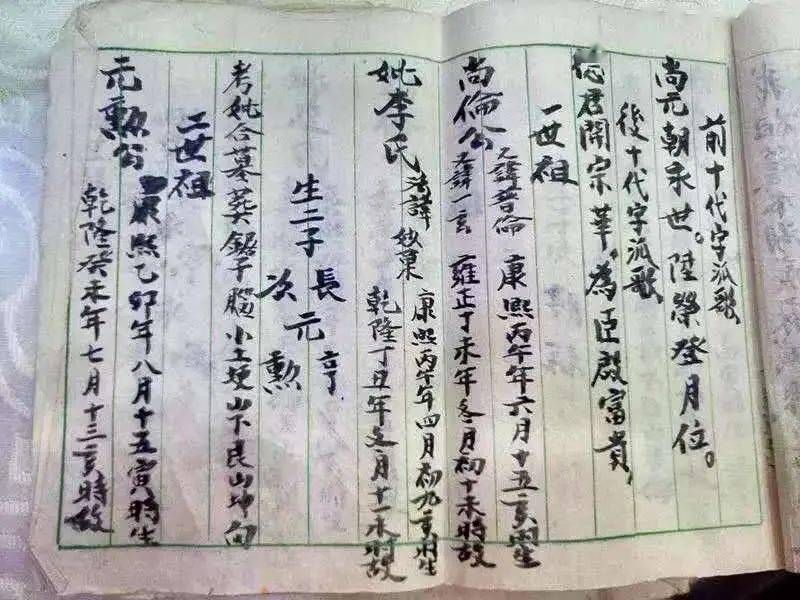 前十代字派歌
尚元朝承世。陸榮登月位。
後十代字派歌
君開宗華，為臣啟富貴
一世祖
尚倫公 又諱普倫 康熙丙午年六月十五亥時生
又諱一玄 雍正丁未年冬月初十未時故
妣李氏 法諱妙菓 康熙丙午年四月初九亥時生
乾隆丁丑年冬月十一未時故
生二子 長元亨
次元勳
考妣合墓葬鋸子腦小土埂山下艮山坤向
二世祖
元勲公 康熙乙卯年八月十五寅時生
乾隆癸未年七月十三亥時故